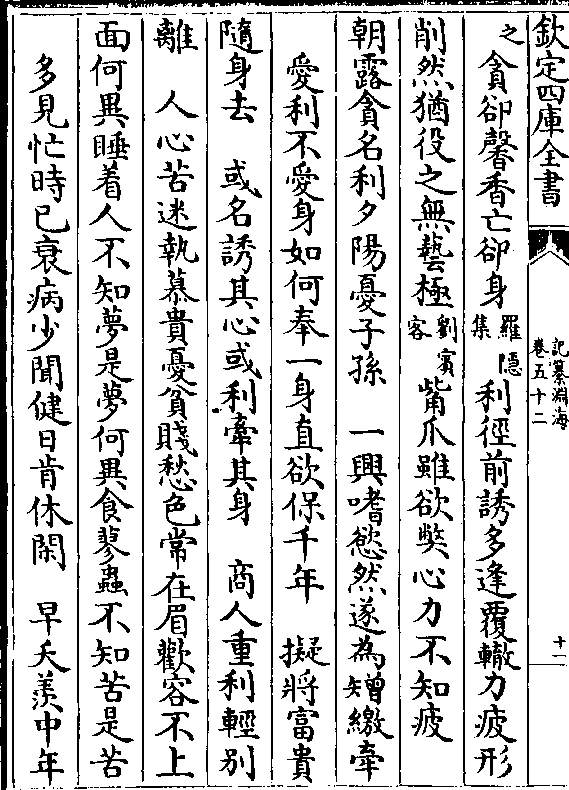 欽定四庫全書
記纂淵海
卷五十二
十一
之貪卻馨香亡卻身羅隱集利徑前誘多逢覆轍力疲形
削然猶役之無藝極劉賓客觜爪雖欲獘心力不知疲
朝露貪名利夕陽憂子孫 一興嗜慾然遂為矰繳牽
愛利不愛身如何奉一身直欲保千年 擬將富貴
隨身去 或名誘其心或利牽其身 商人重利輕別
離 人心苦迷執慕貴憂貧賤愁色常在眉歡容不上
面何異睡着人不知夢是夢何異食蓼蟲不知苦是苦
多見忙時已衰病少聞健日肯休閑 早夭羨中年